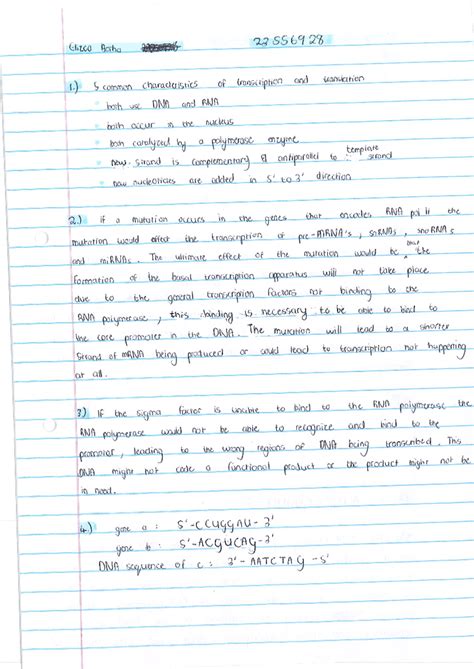 22556928
1.) 5 common characteristics of transcription and translation
both use DNA and RNA
both occur in the nucleus
both catalyced by a polymerase enzyme
new strand is complementary & antiparallel to template strand
new nucleotides are added in 5' to 3' direction
2.) if a mutation occurs in the genes that encodes RNA pol II the
mutation would effect the transcription of pre-mRNA's, snRNAs, snoRNAs
and miRNAs. The ultimate effect of the mutation would be that the
formation of the basal transcription apparatus will not take place
due to the general transcription factors not binding to the
RNA polymerase, this binding is necessary to be able to bind to
the core promoter in the DNA. The mutation will lead to a shorter
strand of mRNA being produced or could lead to transcription not happening
at all.
3.) If the sigma factor is unable to bind to the RNA polymerase the
RNA polymerase would not be able to recognize and bind to the
promoter, leading to the wrong regions of DNA being transcribed. This
DNA might not code a functional product or the product might not be
in need.
4.) gene a: 5'-CCUGGAU-3'
gene b: 5'-ACGUCAG-3'
DNA sequence of c: 3'-AATCTAG-5'